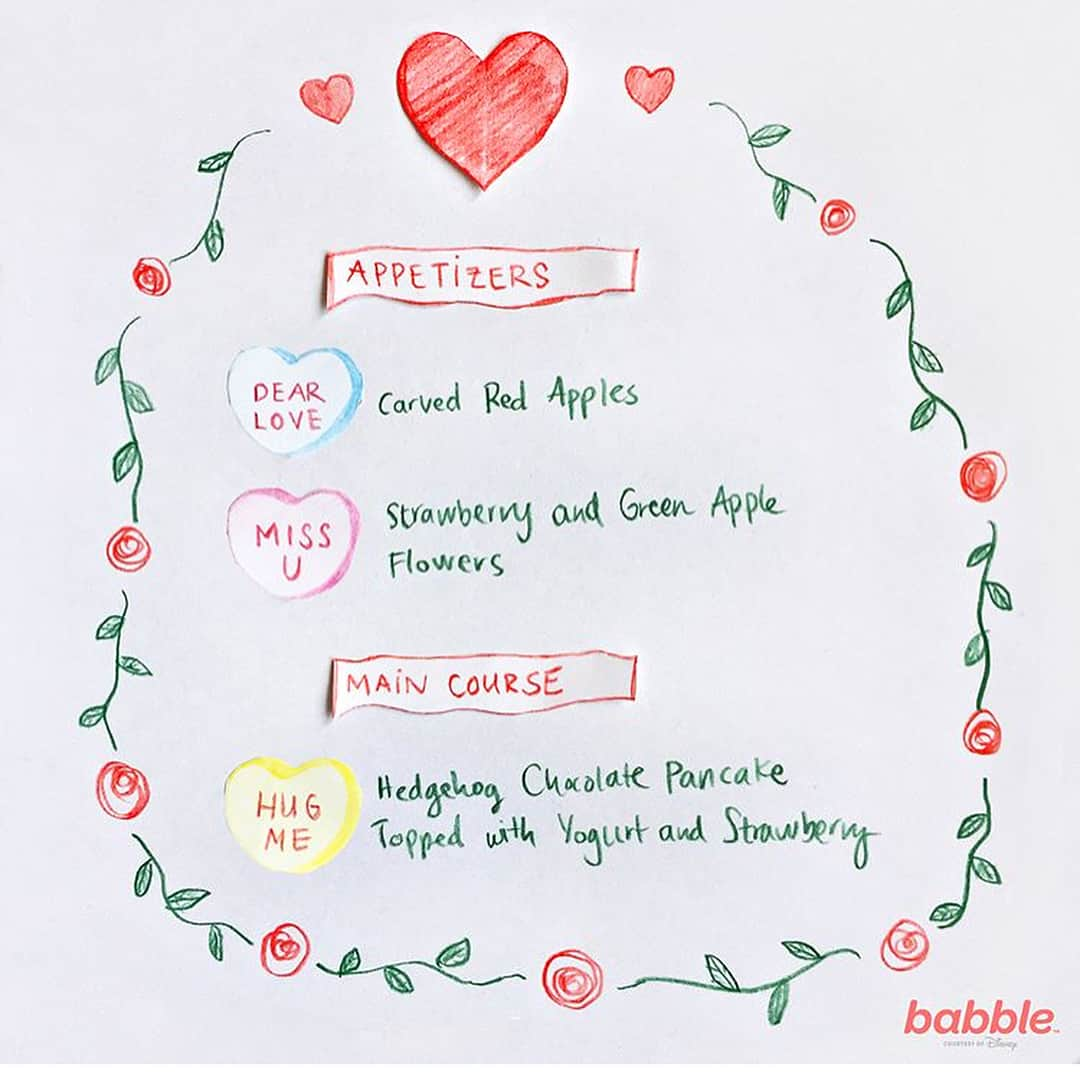 APPETIZERS
DEAR
LOVE
Carved Red Apples
MISS
U
Strawberry and Green Apple
Flowers
MAIN COURSE
HUG
ME
Hedgehog Chocolate Pancake
Topped with Yogurt and Strawberry
babble
COURTESY OF Disney